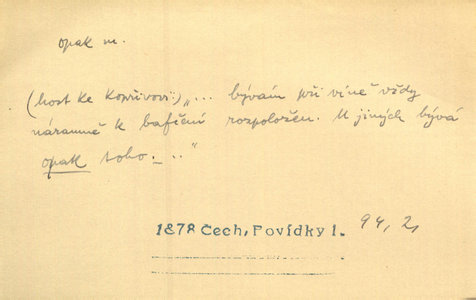 opak m.
(host ke Kopřivovi:) „... bývám při víně vždy
náramně k bafčení rozpoložen. U jiných bývá
opak toho_ ..“
1878 Čech, Povídky 1. 94, 2,